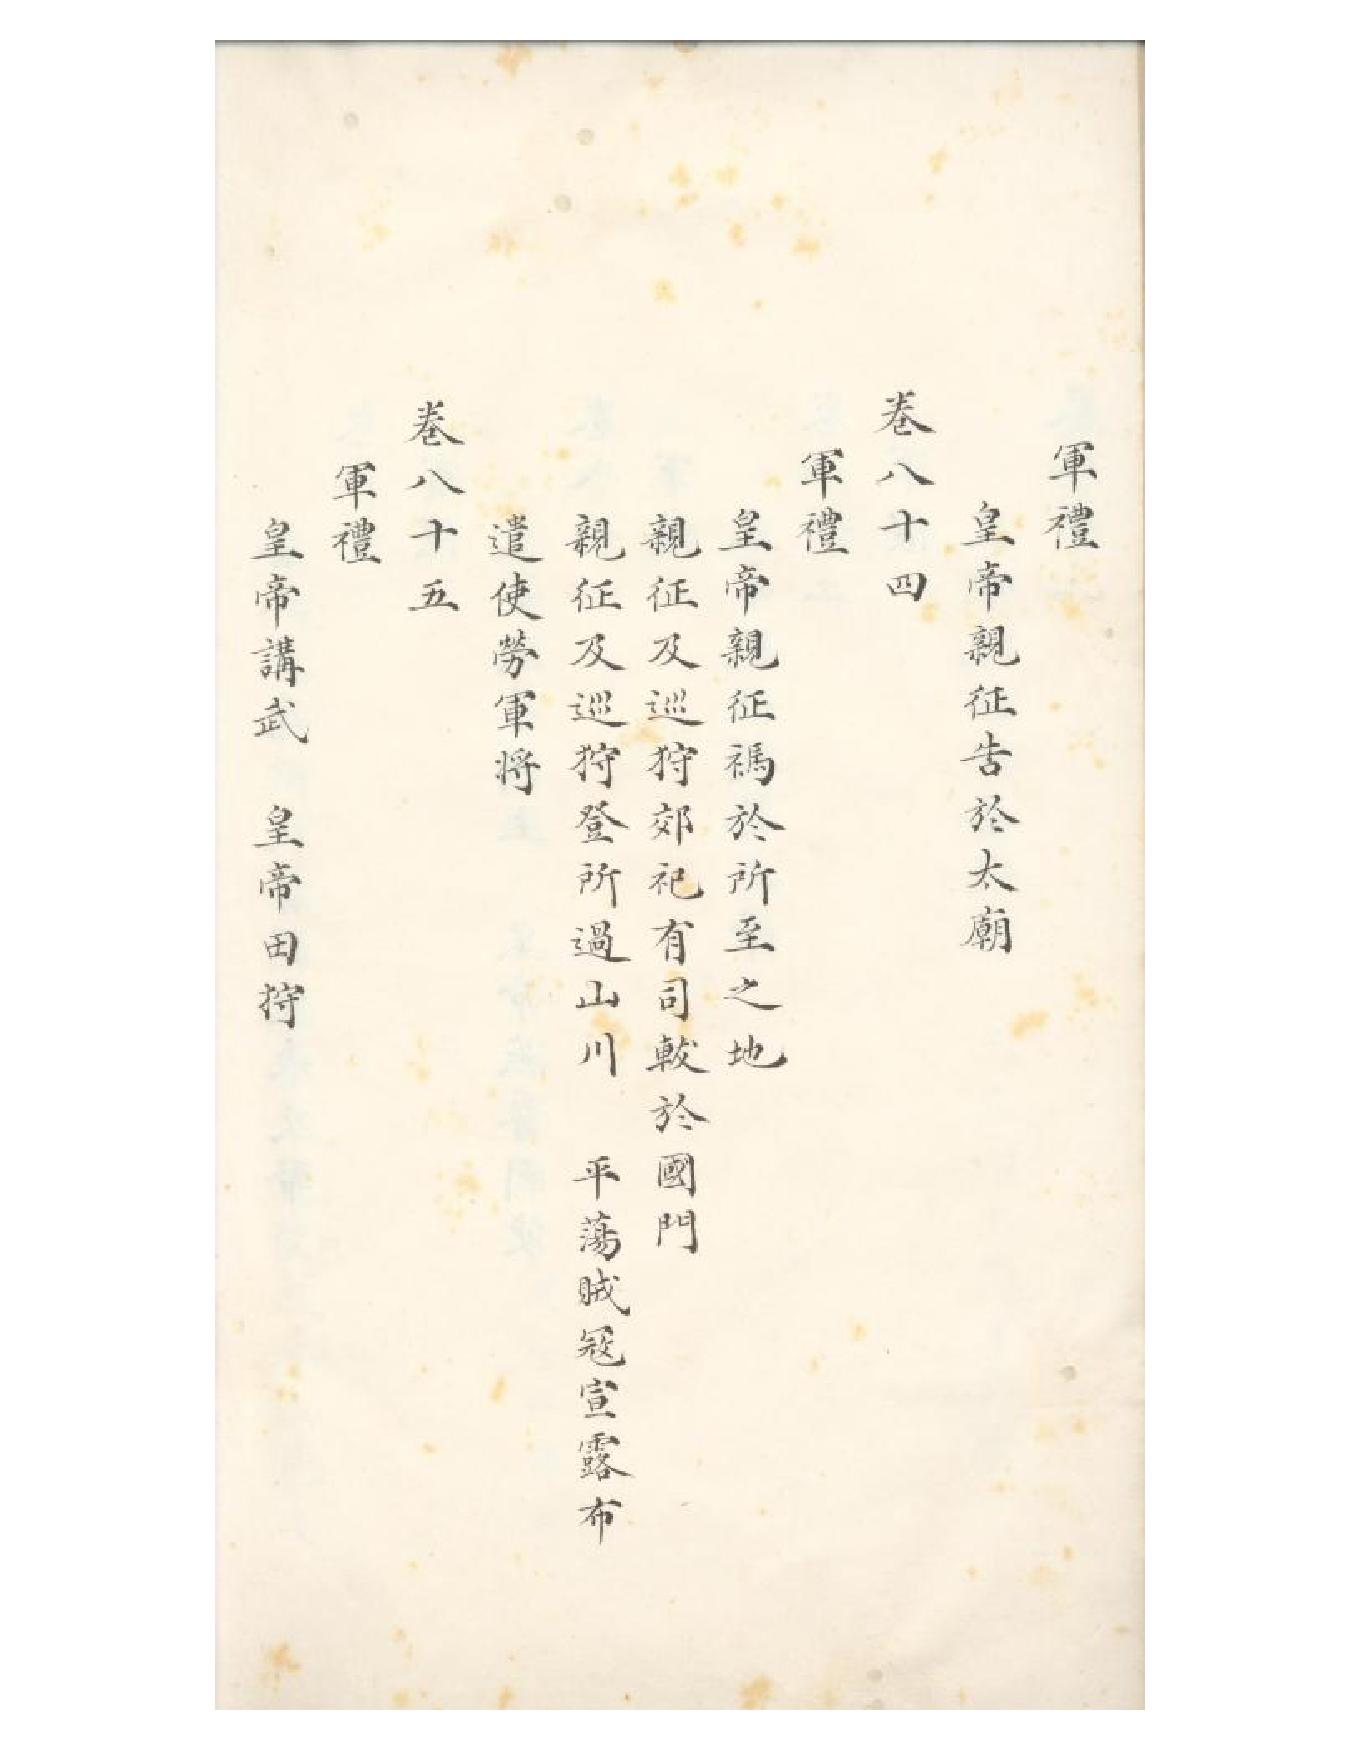 軍禮
皇帝親征告於太廟
卷八十四
軍禮
皇帝親征禡於所至之地
親征及巡狩郊祀有司軷於國門
親征及巡狩登所過山川　平蕩賊寇宣露布
遣使勞軍將
卷八十五
軍禮
皇帝講武　皇帝田狩